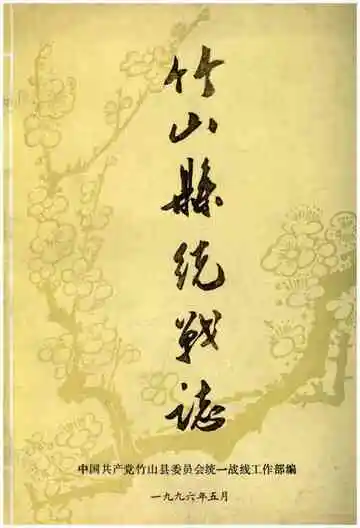 竹山縣统战誌
中国共产党竹山县委员会统一战线工作部编
一九九六年五月